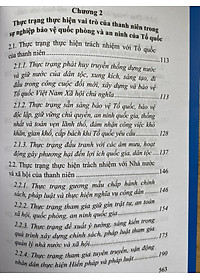 Chương 2
Thực trạng thực hiện vai trò của thanh niên trong
sự nghiệp bảo vệ quốc phòng và an ninh của Tổ quốc
2.1. Thực trạng thực hiện trách nhiệm với Tổ quốc
của thanh niên 113
2.1.1. Thực trạng phát huy truyền thống dựng nước
và giữ nước của dân tộc, xung kích, sáng tạo, đi
đầu trong công cuộc đổi mới, xây dựng và bảo vệ
Tổ quốc Việt Nam Xã hội chủ nghĩa
2.1.2. Thực trạng sẵn sàng bảo vệ Tổ quốc, bảo vệ
độc lập, giữ vững chủ quyền, an ninh quốc gia, thống
nhất và toàn vẹn lãnh thổ, đảm nhận công việc khó
khăn, gian khổ, cấp bách khi Tổ quốc yêu cầu
2.1.3. Thực trạng đấu tranh với các âm mưu, hoạt
động gây phương hại đến lợi ích quốc gia, dân tộc 137
2.2. Thực trạng thực hiện trách nhiệm với Nhà nước
và xã hội của thanh niên 146
2.2.1. Thực trạng gương mẫu chấp hành chính
sách, pháp luật và thực hiện nghĩa vụ công dân 146
2.2.2. Thực trạng tham gia giữ gìn trật tự, an toàn
xã hội, quốc phòng, an ninh quốc gia
2.2.3. Thực trạng đề xuất ý tưởng, sáng kiến trong
quá trình xây dựng chính sách, pháp luật tham gia
quản lý nhà nước và xã hội
2.2.4. Thực trạng tham gia tuyên truyền, vận động
nhân dân thực hiện Hiến pháp và pháp luật 190
563